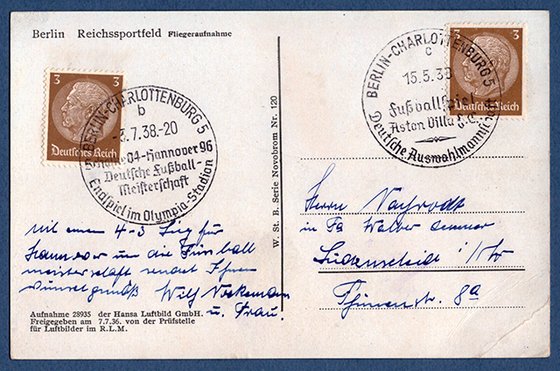 Berlin Reichssportfeld Fliegeraufnahme
3 3
Deutsches Reich
BERLIN-CHARLOTTENBURG 5
b
3.7.38.-20
04-Hannover 96
Deutsche Fußball-
Meisterschaft
Endspiel im Olympia-Stadion
Mit einem 4-3 Sieg für
Hannover um die Fussball
meisterschaft sendet Ihnen
u. Frau.
Aufnahme 28935 der Hansa Luftbild GmbH.
Freigegeben am 7.7.36. von der Prüfstelle
für Luftbilder im R.L.M.
W. St. B. Serie Novobrom Nr. 120
3 3
Deutsches Reich
BERLIN-CHARLOTTENBURG 5
c
15.5.38
Aston Villa
Deutsche Auswahlmannschaft
Herrn
in Fa Walter
Lüdenscheid i/
8a